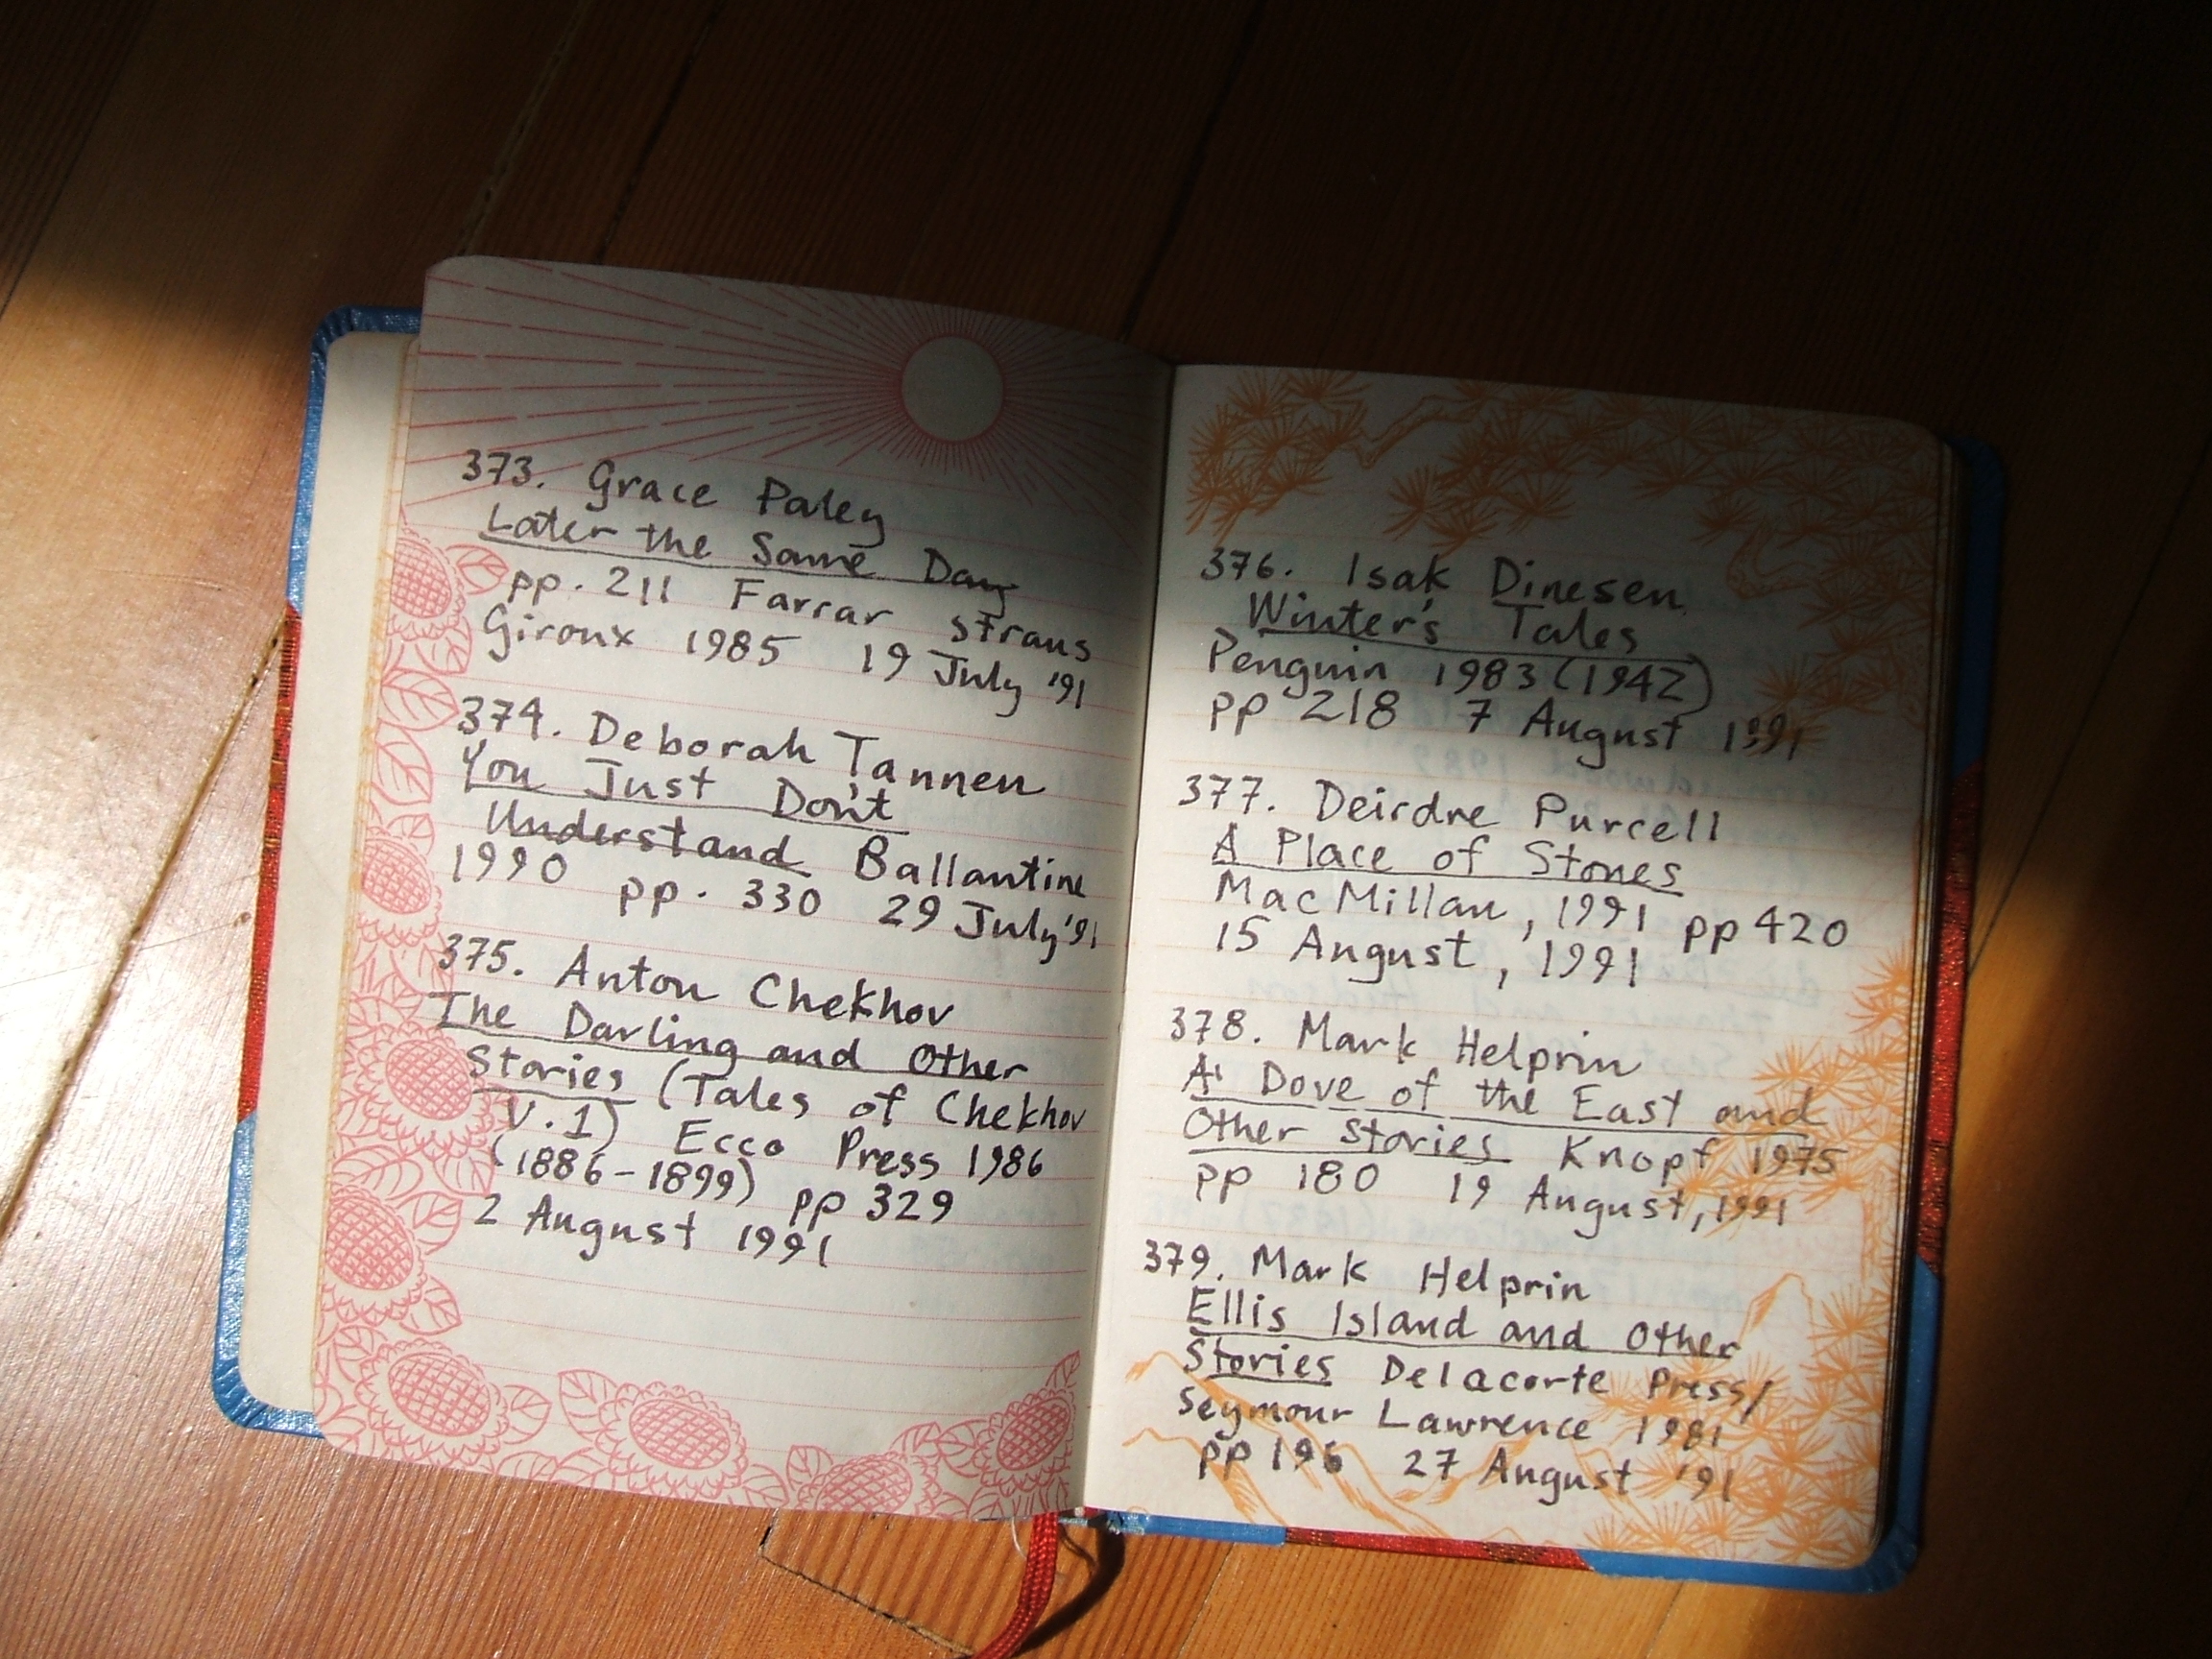 373. Grace Paley
Later the Same Day
pp. 211 Farrar Straus
Giroux 1985 19 July '91
374. Deborah Tannen
You Just Don't
Understand Ballantine
1990 pp. 330 29 July '91
375. Anton Chekhov
The Darling and Other
Stories (Tales of Chekhov
V.1) Ecco Press 1986
(1886-1899) pp 329
2 August 1991
376. Isak Dinesen
Winter's Tales
Penguin 1983 (1942)
pp 218 7 August 1991
377. Deirdre Purcell
A Place of Stones
MacMillan, 1991 pp 420
15 August, 1991
378. Mark Helprin
A Dove of the East and
Other Stories Knopf 1975
pp 180 19 August, 1991
379. Mark Helprin
Ellis Island and Other
Stories Delacorte Press/
Seymour Lawrence 1981
pp 196 27 August '91